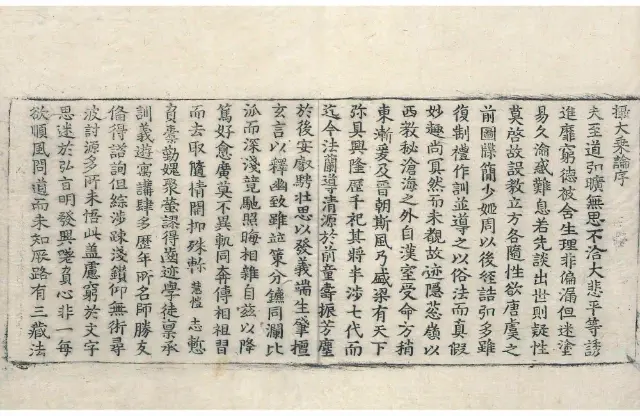 攝大乘論序
夫至道弘曠無思不洽大悲平等誘
進靡窮德被含生理非偏漏但迷塗
易久淪惑難息若先談出世則疑性
莫啓故設教立方各隨性欲唐虞之
前圖牒簡少姬周以後經誥弘多雖
復制禮作訓並導之以俗法而真假
妙趣尚冥然而未覩故迹隱葱嶺以
西教秘滄海之外自漢室受命方稍
東漸爰及晉朝斯風乃盛梁有天下
弥具興隆歷千祀其將半涉七代而
迄今法蘭導清源於前童壽振芳塵
於後安叡騁壯思以發義端生肇擅
玄言以釋幽致雖並策分鑣同瀾比
派而深淺競馳照晦相雜自兹以降
篤好愈廣莫不異軌同奔傳相祖習
而去取隨情開抑殊軫慧愷志慙
負橐勤愧聚螢謬得齒迹學徒稟承
訓義遊寓講肆多歷年所名師勝友
備得諮詢但綜涉疎淺鑽仰無術尋
波討源多所未悟此蓋慮窮於文字
思迷於弘旨明發興嗟負心非一每
欲順風問道而未知厥路有三藏法